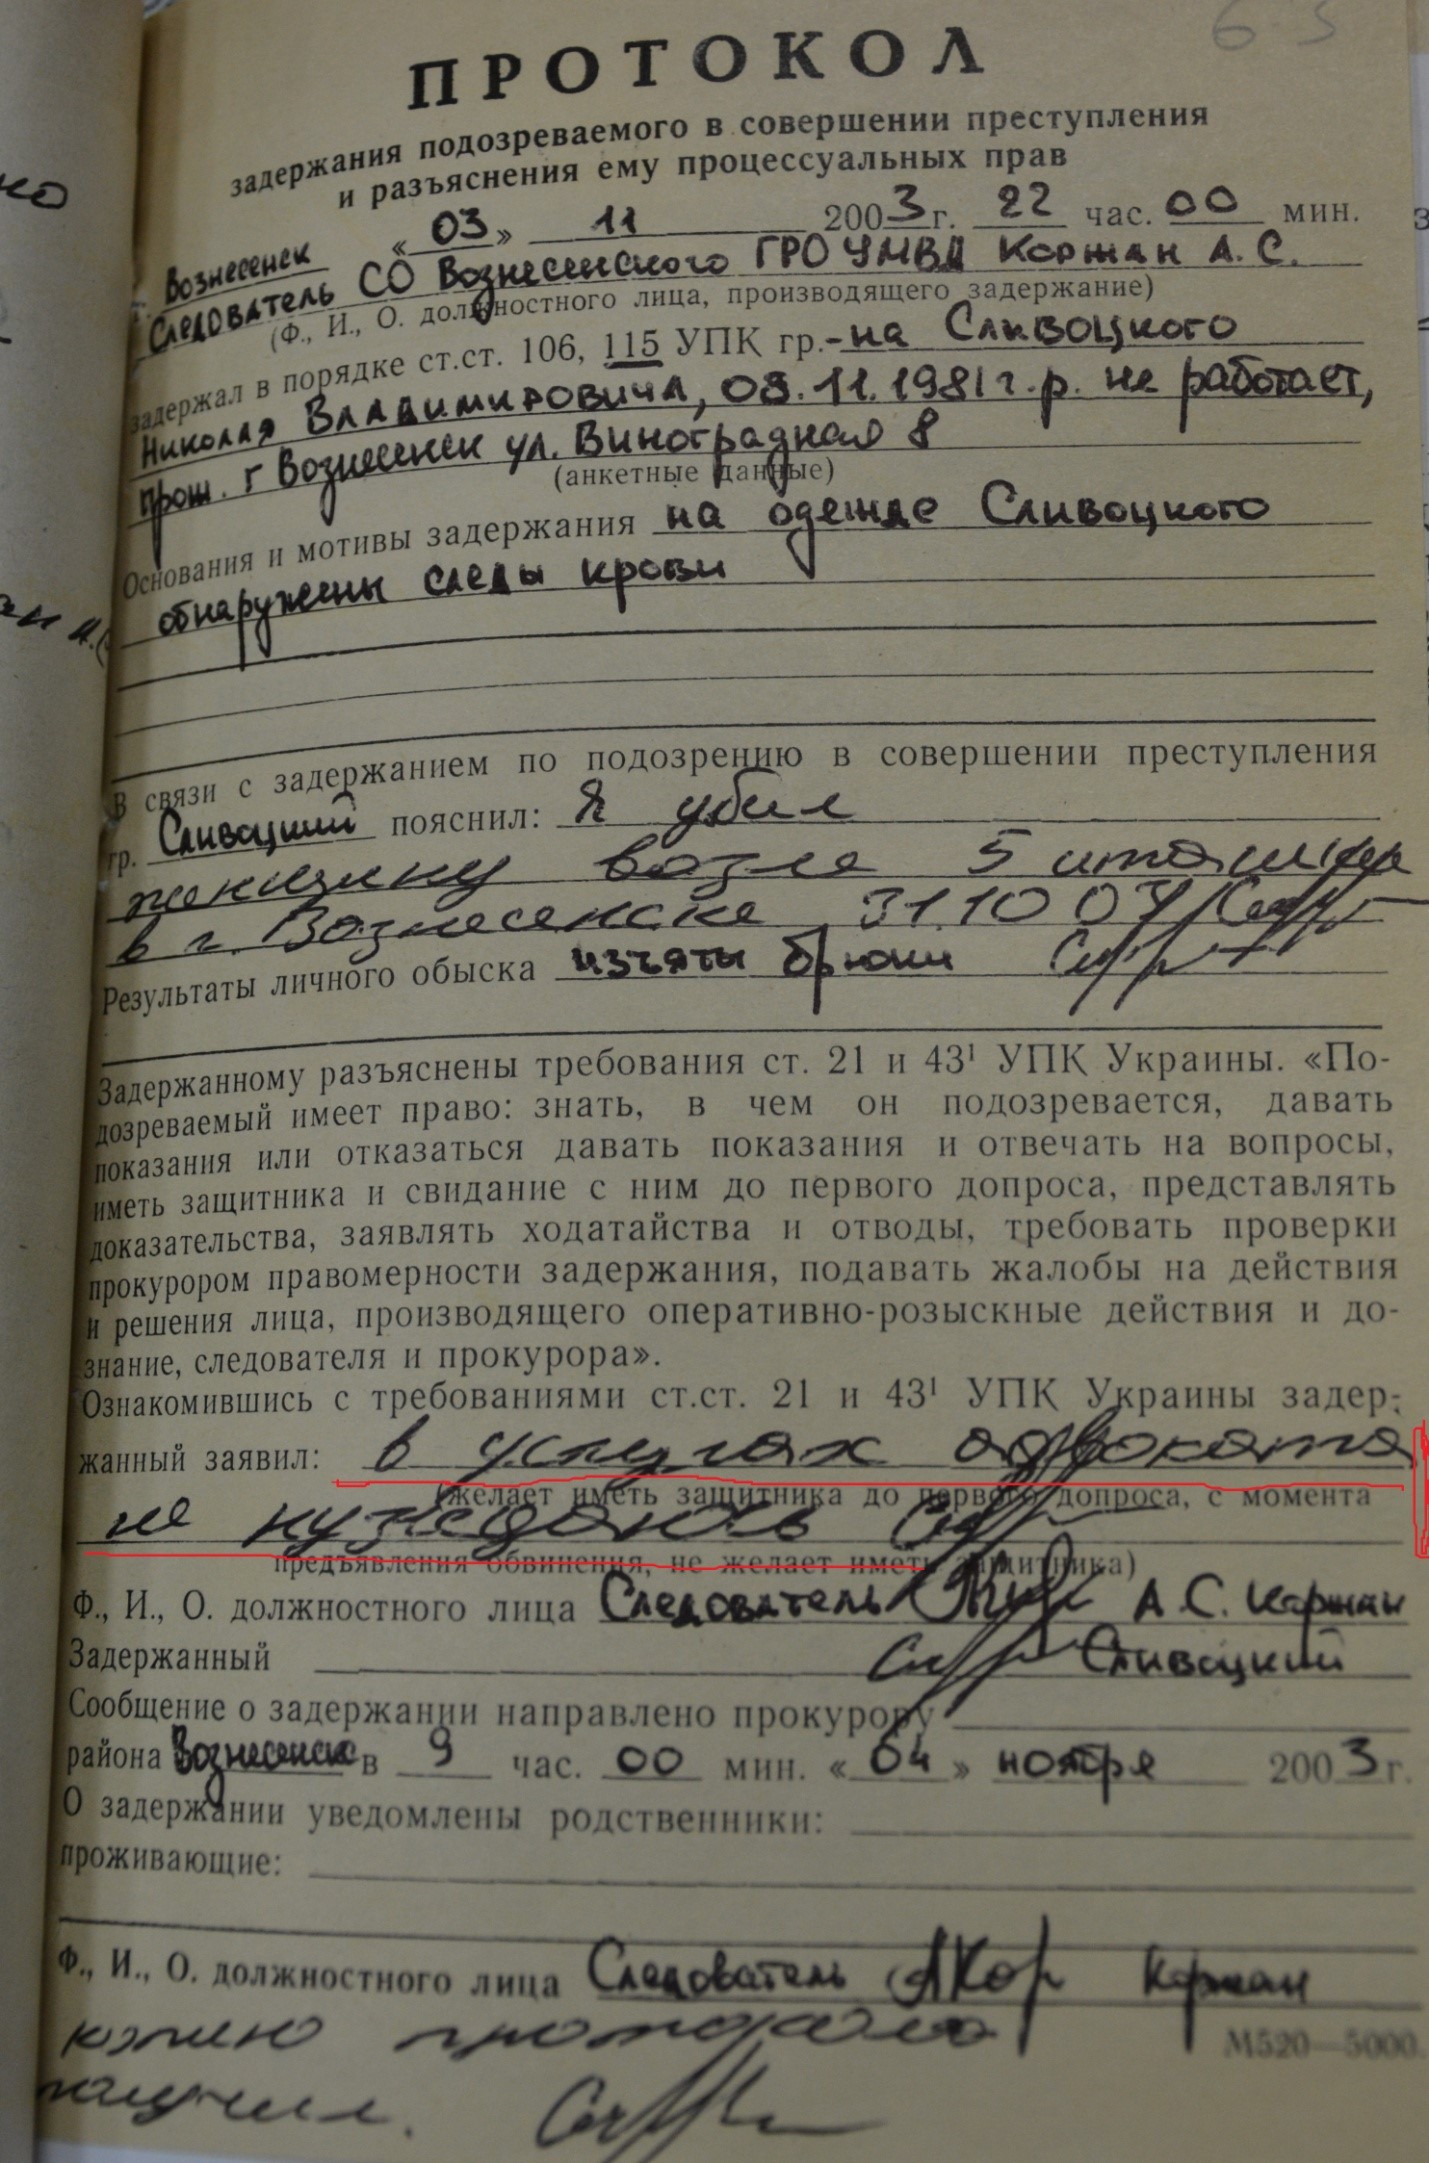 6 5
ПРОТОКОЛ
задержания подозреваемого в совершении преступления
и разъяснения ему процессуальных прав
Вознесенск «03» 11 2003 г. 22 час. 00 мин.
Следователь СО Вознесенского ГРО УМВД Коржан А. С.
(Ф., И., О. должностного лица, производящего задержание)
задержал в порядке ст.ст. 106, 115 УПК гр.-на Сливоцкого
Николая Владимировича, 08.11.1981 г.р. не работает,
прож. г Вознесенск ул. Виноградная 8
(анкетные данные)
Основания и мотивы задержания на одежде Сливоцкого
обнаружены следы крови
В связи с задержанием по подозрению в совершении преступления
гр. Сливоцкий пояснил: Я убил
женщину возле 5 
в г. Вознесенске 31.10 03
Результаты личного обыска изъяты брюки
Задержанному разъяснены требования ст. 21 и 43¹ УПК Украины. «По-
дозреваемый имеет право: знать, в чем он подозревается, давать
показания или отказаться давать показания и отвечать на вопросы,
иметь защитника и свидание с ним до первого допроса, представлять
доказательства, заявлять ходатайства и отводы, требовать проверки
прокурором правомерности задержания, подавать жалобы на действия
и решения лица, производящего оперативно-розыскные действия и до-
знание, следователя и прокурора».
Ознакомившись с требованиями ст.ст. 21 и 43¹ УПК Украины задер-
жанный заявил: в услугах адвоката
(желает иметь защитника до первого допроса, с момента
не нуждаюсь
предъявления обвинения, не желает иметь защитника)
Ф., И., О. должностного лица Следователь А.С. Коржан
Задержанный Сливоцкий
Сообщение о задержании направлено прокурору
района Вознесенск в 9 час. 00 мин. «04» ноября 2003 г.
О задержании уведомлены родственники:
проживающие:
Ф., И., О. должностного лица Следователь Коржан
копию протокола
М520—5000.
получил.